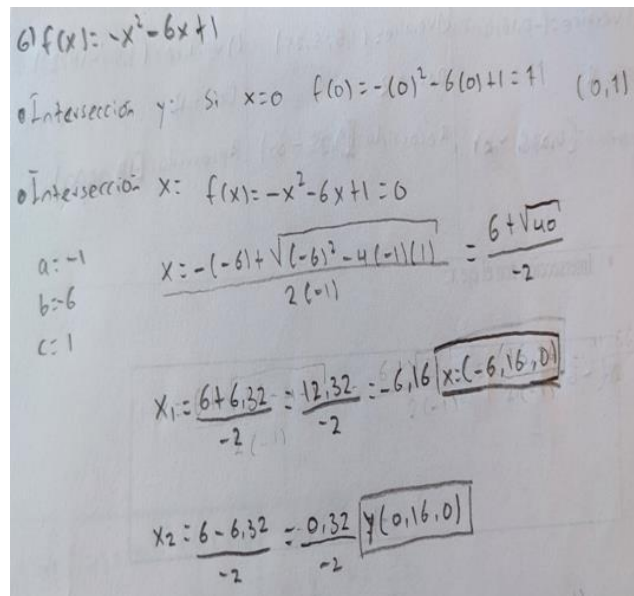 6) f(x) = -x² - 6x + 1
• Intersección y: Si x=0 f(0) = -(0)² - 6(0) + 1 = 1 (0,1)
• Intersección x: f(x) = -x² - 6x + 1 = 0
a = -1
b = -6
c = 1
x = -(-6) + √((-6)² - 4(-1)(1)) / 2(-1) = 6 + √40 / -2
x₁ = 6 + 6,32 / -2 = 12,32 / -2 = -6,16 x = (-6,16,0)
x₂ = 6 - 6,32 / -2 = 0,32 / -2 y (0,16,0)